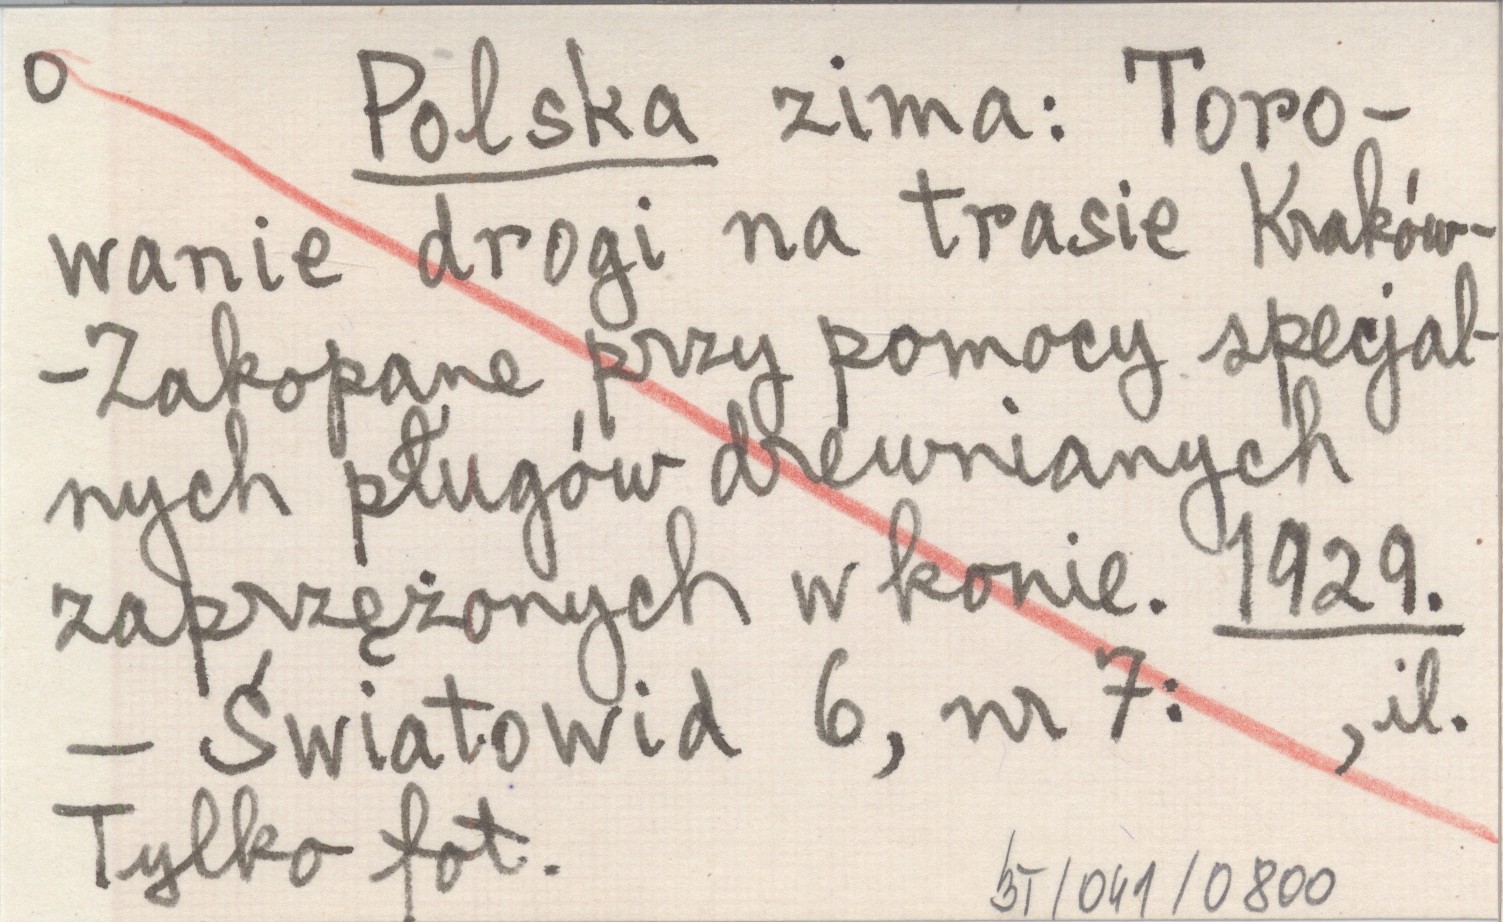 o Polska zima: Toro-
wanie drogi na trasie Kraków-
-Zakopane przy pomocy specjal-
nych pługów drewnianych
zaprzężonych w konie. 1929.
— Światowid 6, nr 7: , il.
Tylko fot.
BT/041/0800